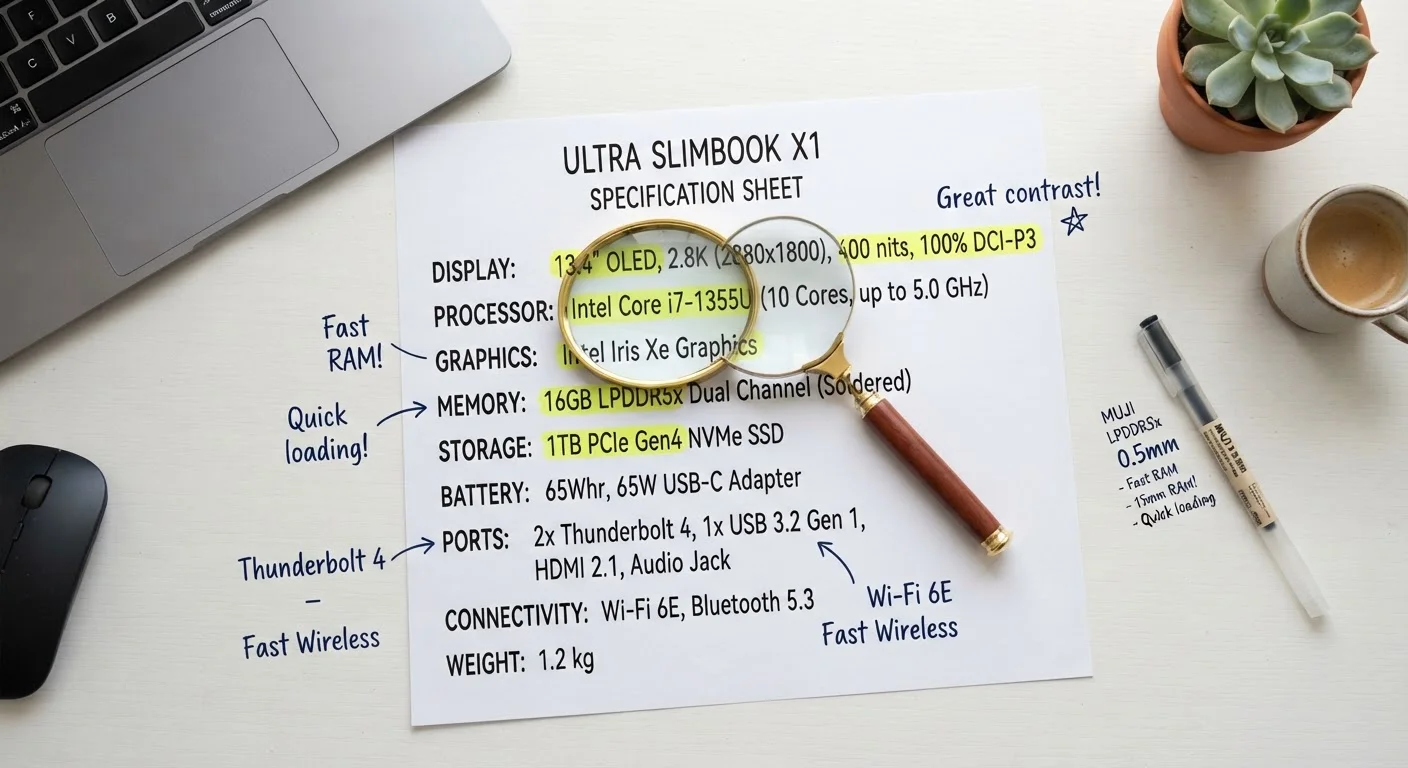 ULTRA SLIMBOOK X1
SPECIFICATION SHEET
Great contrast!
DISPLAY: 13.4" OLED, 2.8K (2880x1800), 400 nits, 100% DCI-P3
PROCESSOR: Intel Core i7-1355U (10 Cores, up to 5.0 GHz)
Fast
RAM!
GRAPHICS: Intel Iris Xe Graphics
Quick
loading!
MEMORY: 16GB LPDDR5x Dual Channel (Soldered)
STORAGE: 1TB PCIe Gen4 NVMe SSD
BATTERY: 65Whr, 65W USB-C Adapter
Thunderbolt 4
–
Fast Wireless
PORTS: 2x Thunderbolt 4, 1x USB 3.2 Gen 1,
HDMI 2.1, Audio Jack
Wi-Fi 6E
Fast Wireless
CONNECTIVITY: Wi-Fi 6E, Bluetooth 5.3
WEIGHT: 1.2 kg
MUJI
LPDDRSx
0.5mm
- Fast RAM
- 15mm RAM!
- Quick loading
F
B
V
C